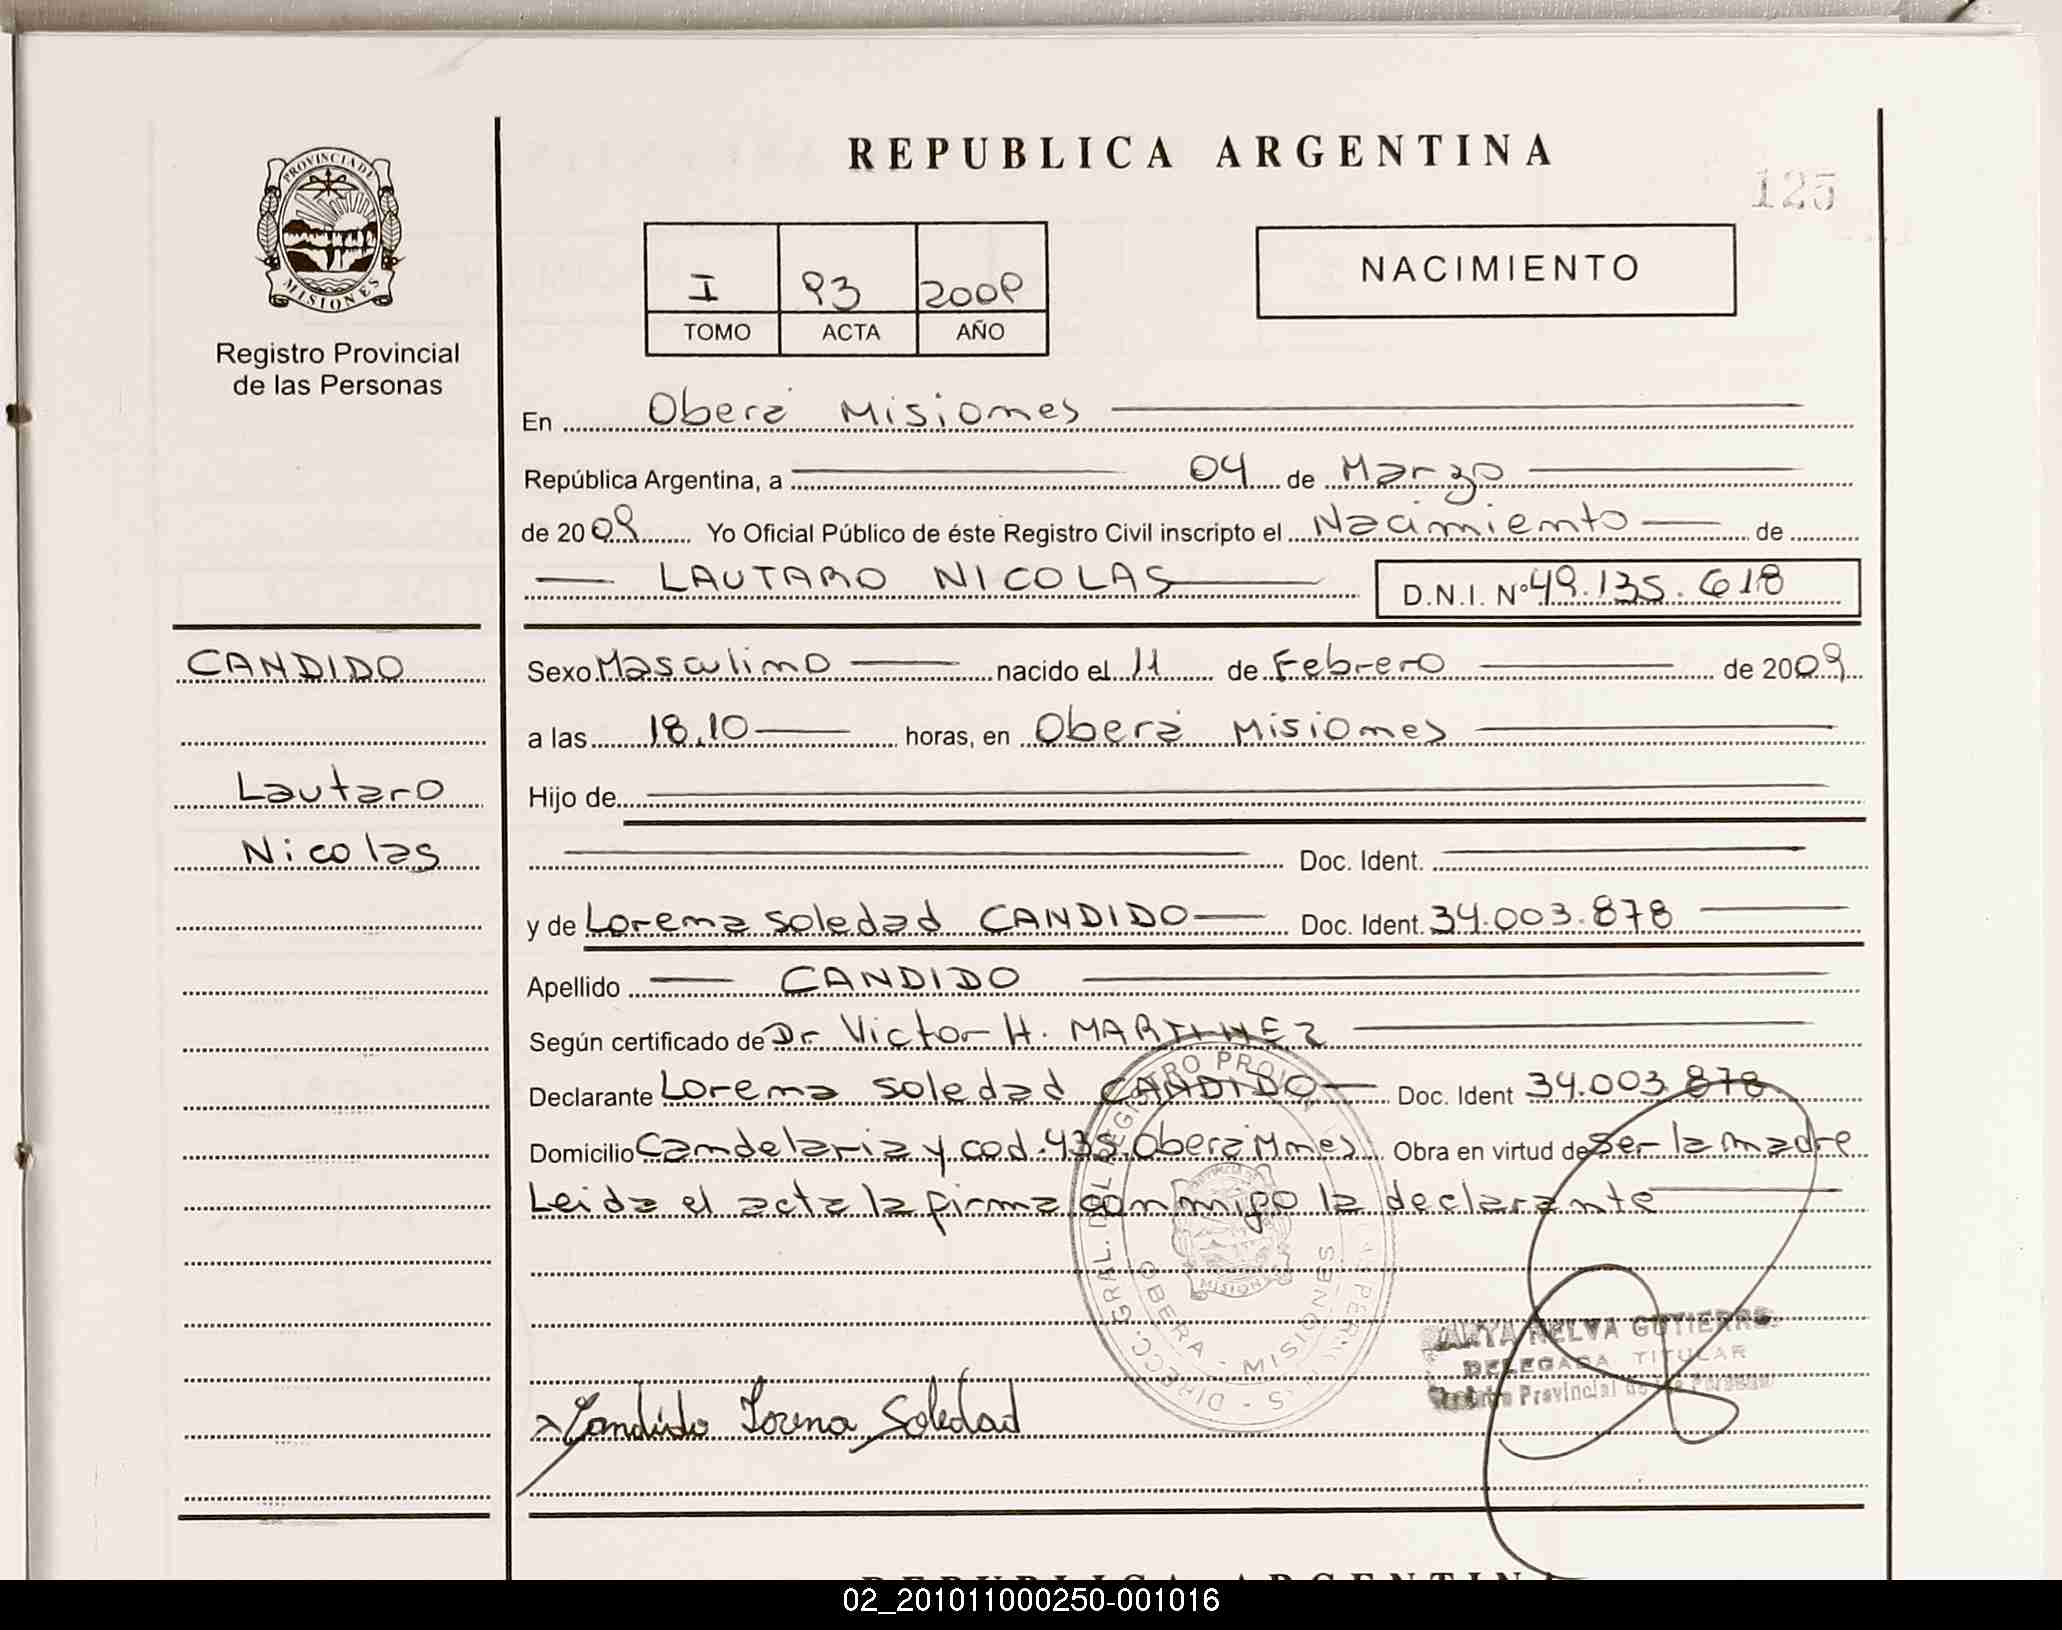 REPUBLICA ARGENTINA
125
PROVINCIA DE
MISIONES
Registro Provincial
de las Personas
NACIMIENTO
I 93 2009
TOMO ACTA AÑO
En Oberá Misiones
República Argentina, a 04 de Marzo
de 2009 Yo Oficial Público de éste Registro Civil inscripto el Nacimiento de
LAUTARO NICOLAS D.N.I. Nº 49.135.618
CANDIDO
Lautaro
Nicolas
Sexo Masculino nacido el 11 de Febrero de 2009
a las 18.10 horas, en Oberá Misiones
Hijo de
Doc. Ident.
y de Lorena Soledad CANDIDO Doc. Ident. 34.003.878
Apellido CANDIDO
Según certificado de Dr Victor H. MARTINEZ
Declarante Lorena Soledad CANDIDO Doc. Ident 34.003.878
Domicilio Candelaria y cod. 435. Oberá Mnes Obra en virtud de Ser la madre
Leida el acta la firma conmigo la declarante
DIRECC. GRAL. DEL REGISTRO
OBERA - MISIONES
MISIONES
NELVA GUTIERRE
DELEGADA TITULAR
Provincial de las Personas
Candido Lorena Soledad
REPUBLICA ARGENTINA
02_201011000250-001016